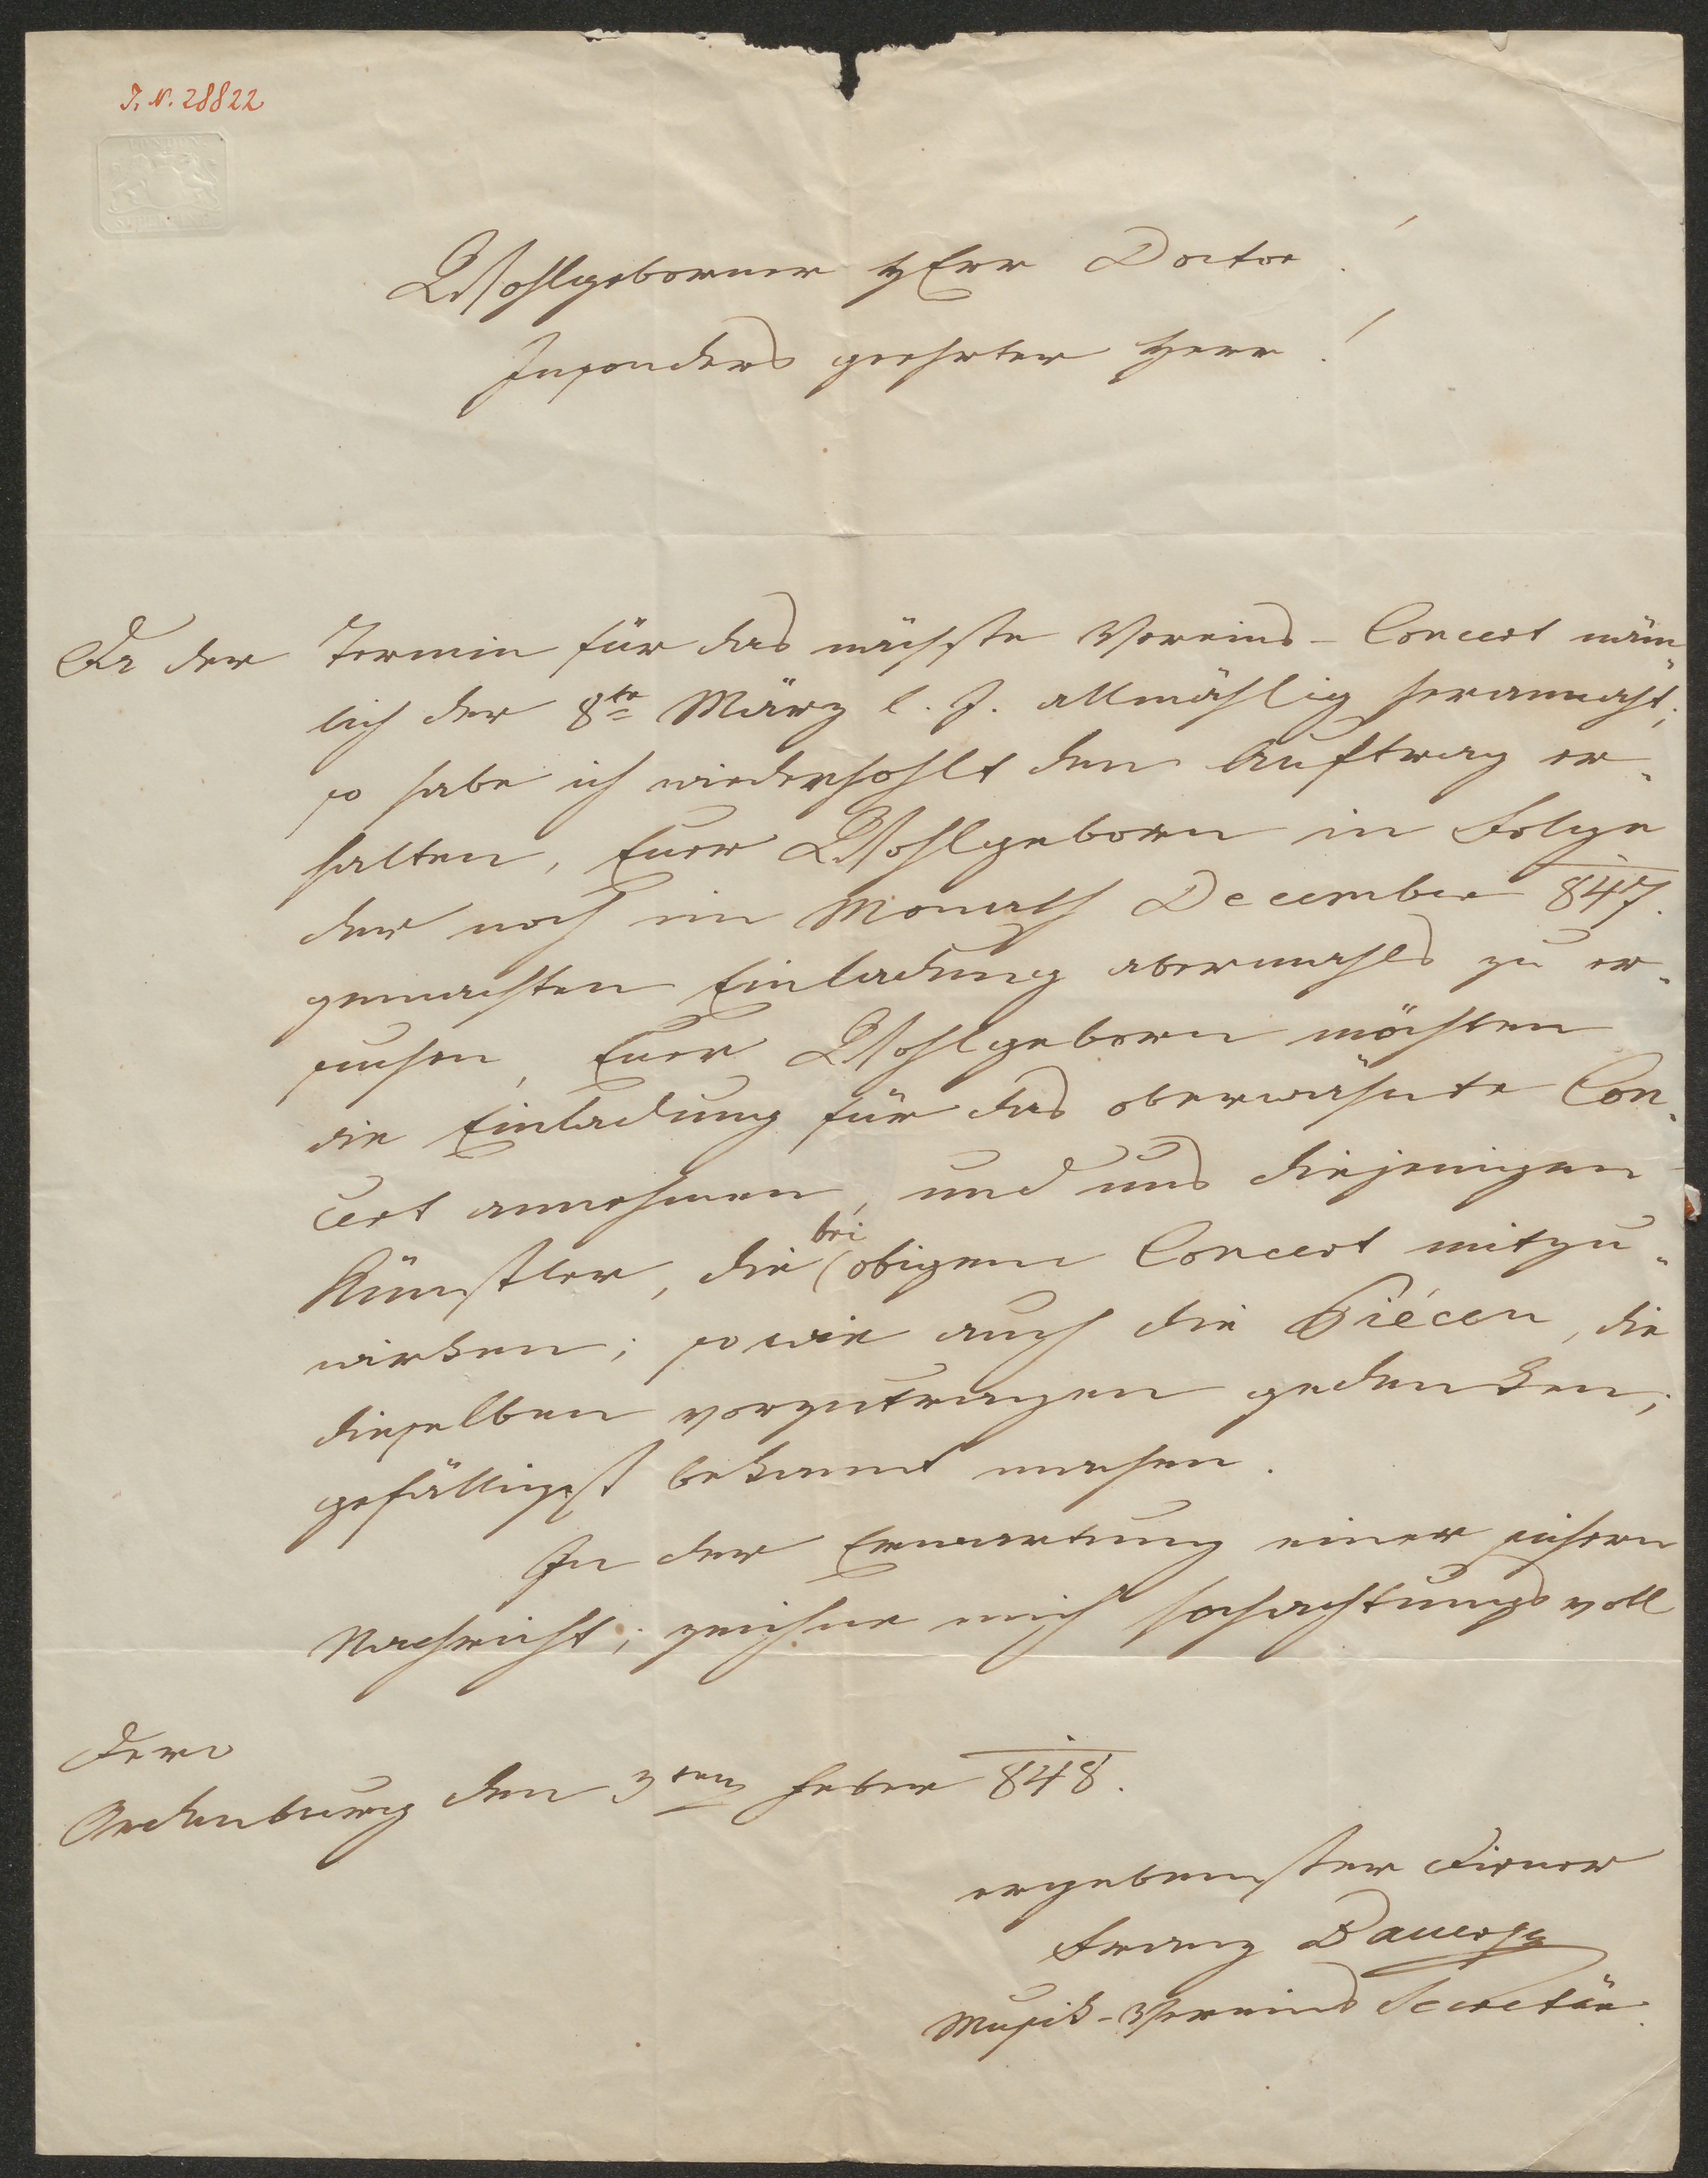 I. N. 28822
Wohlgeborner HErr Doctor!
Insonders geehrter Herr!
Da der Termin für das nächste Vereins-Concert näm-
lich der 8te März l. J. allmählig herannaht;
so habe ich wiederhohlt den Auftrag er-
halten, Euer Wohlgeborn in Folge
der noch im Monath December 847.
gemachten Einladung abermahls zu er-
suchen, Euer Wohlgeborn möchten
die Einladung für das oberwähnte Con-
cert annehmen, und uns diejenigen
Künstler, die bei obigem Concert mitzu-
wirken; so wie auch die Piécen, die
dieselben vorzutragen gedenken;
gefälligst bekannt machen.
In der Erwartung einer sichern
Nachricht; zeichne mich hochachtungsvoll
Dero
Oedenburg den 3ten Feber 848.
ergebenster Diener
Franz
Musik-Vereins Secretär.